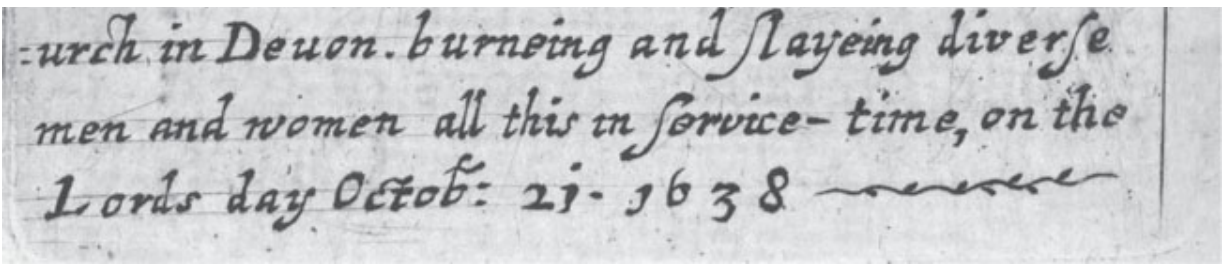 :urch in Deuon. burneing and ſlayeing diverſe
men and women all this in ſervice- time, on the
Lords day Octob: 21. 1638